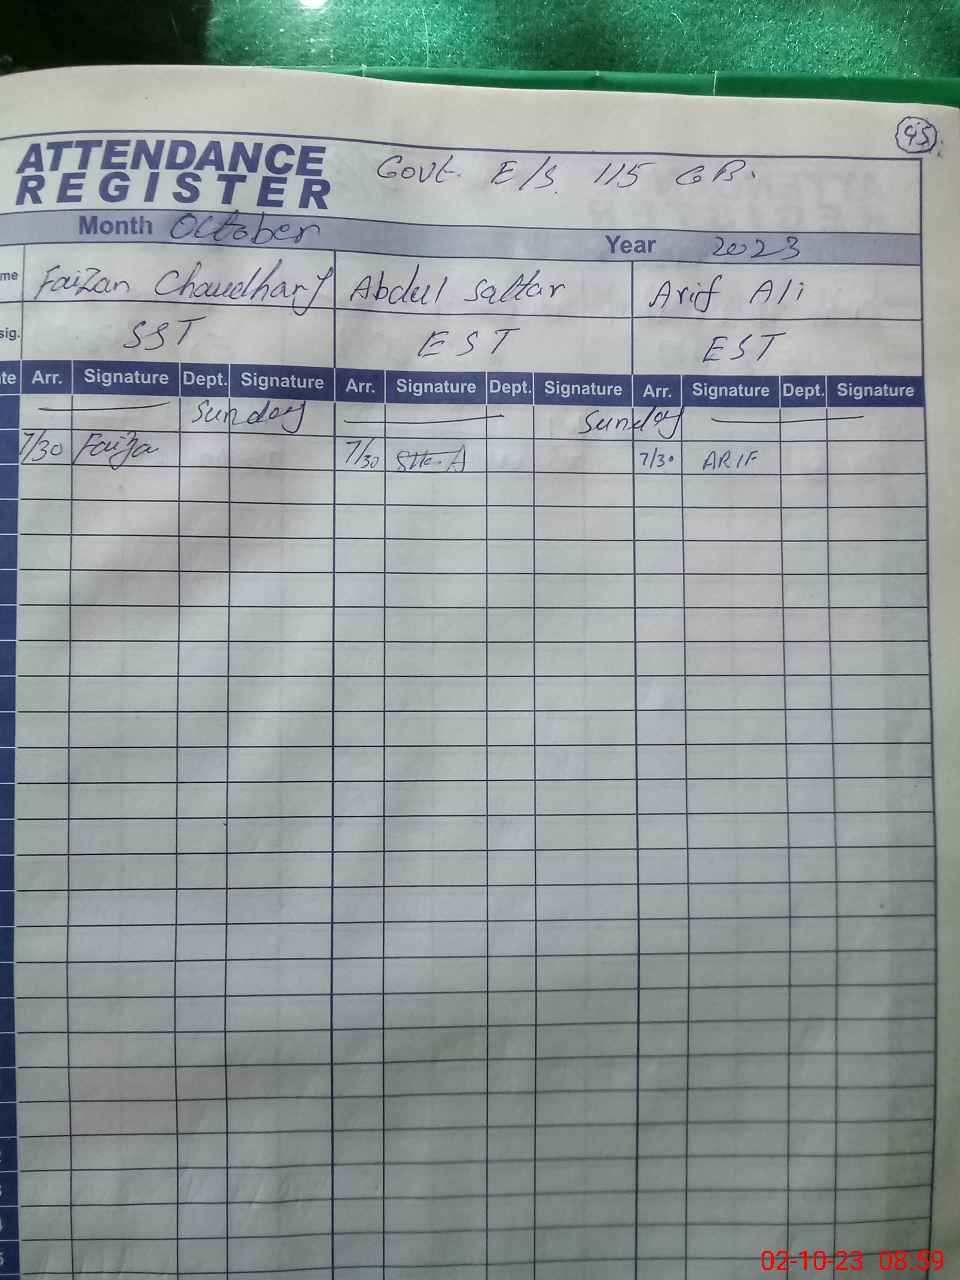 45
ATTENDANCE
REGISTER
Govt. E/S. 115 GB.
Month October
Year 2023
me Faizan Chaudhary Abdul Sattar Arif Ali
sig. SST EST EST
te Arr. Signature Dept. Signature Arr. Signature Dept. Signature Arr. Signature Dept. Signature
Sunday Sunday
7/30 Faiza 7/30 7/30 ARIF
2
3
4
5
02-10-23 08:59